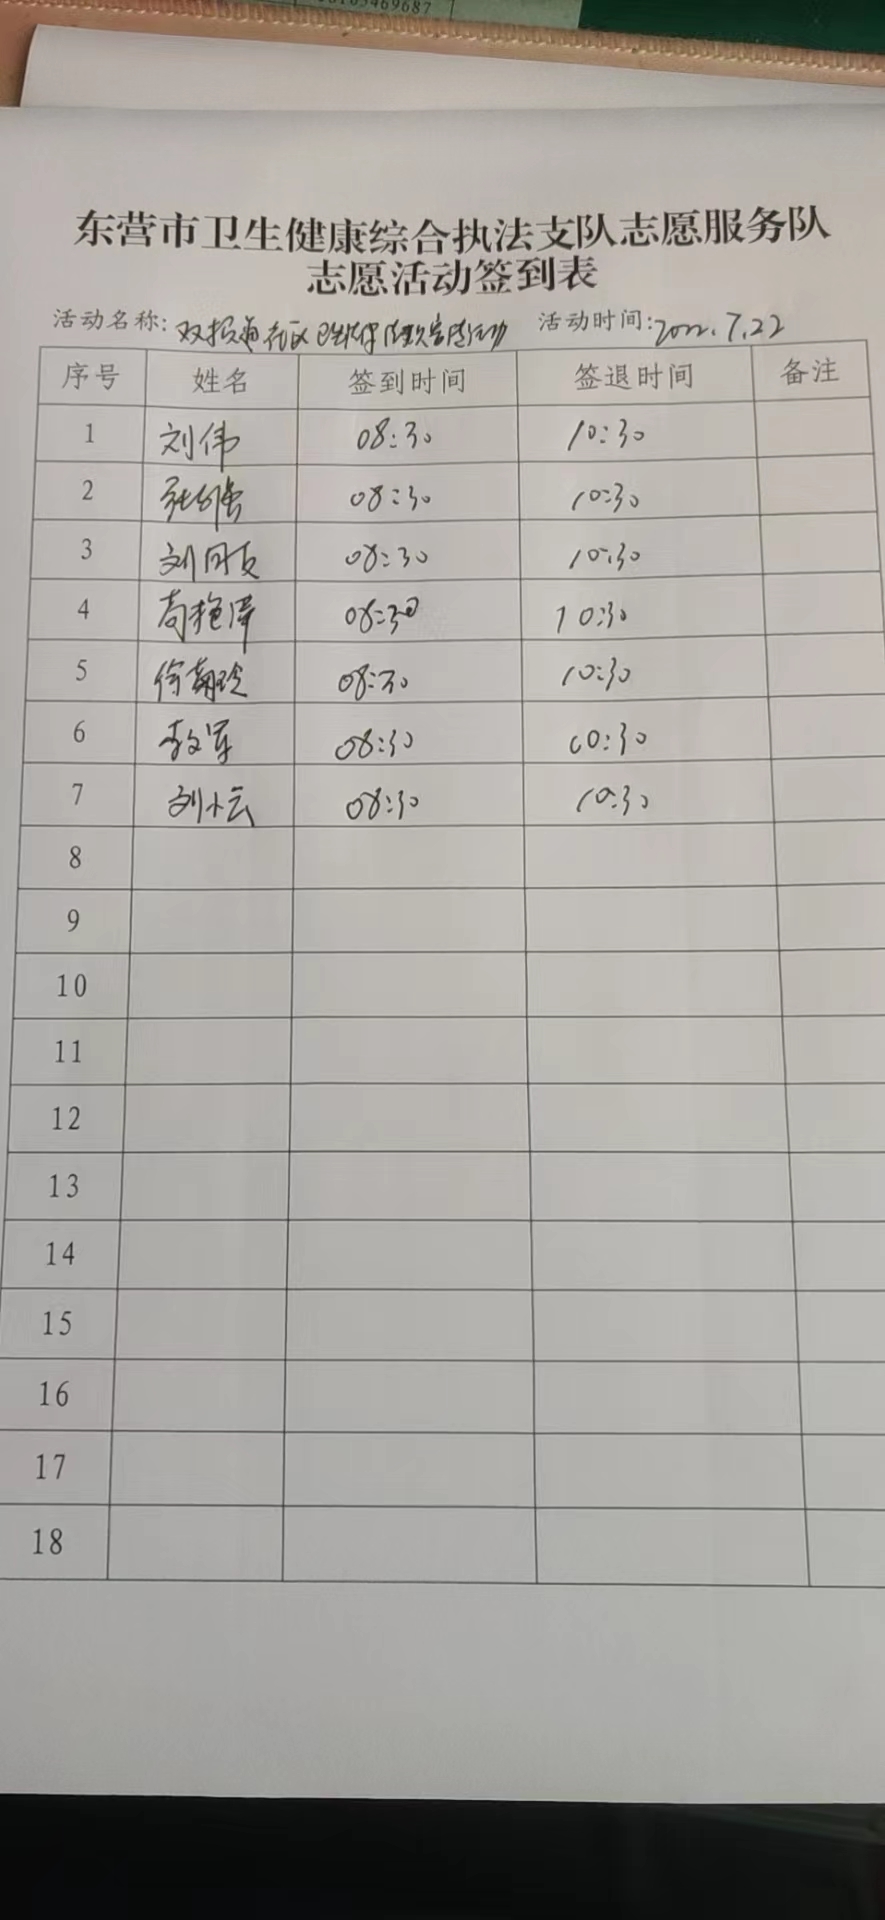 东营市卫生健康综合执法支队志愿服务队
志愿活动签到表
活动名称: 双报到社区 活动 活动时间: 2022.7.22
序号 姓名 签到时间 签退时间 备注
1 刘伟 08:30 10:30
2 08:30 10:30
3 刘同友 08:30 10:30
4 08:30 10:30
5 徐菊玲 08:30 10:30
6 李文军 08:30 10:30
7 刘小云 08:30 10:30
8
9
10
11
12
13
14
15
16
17
18